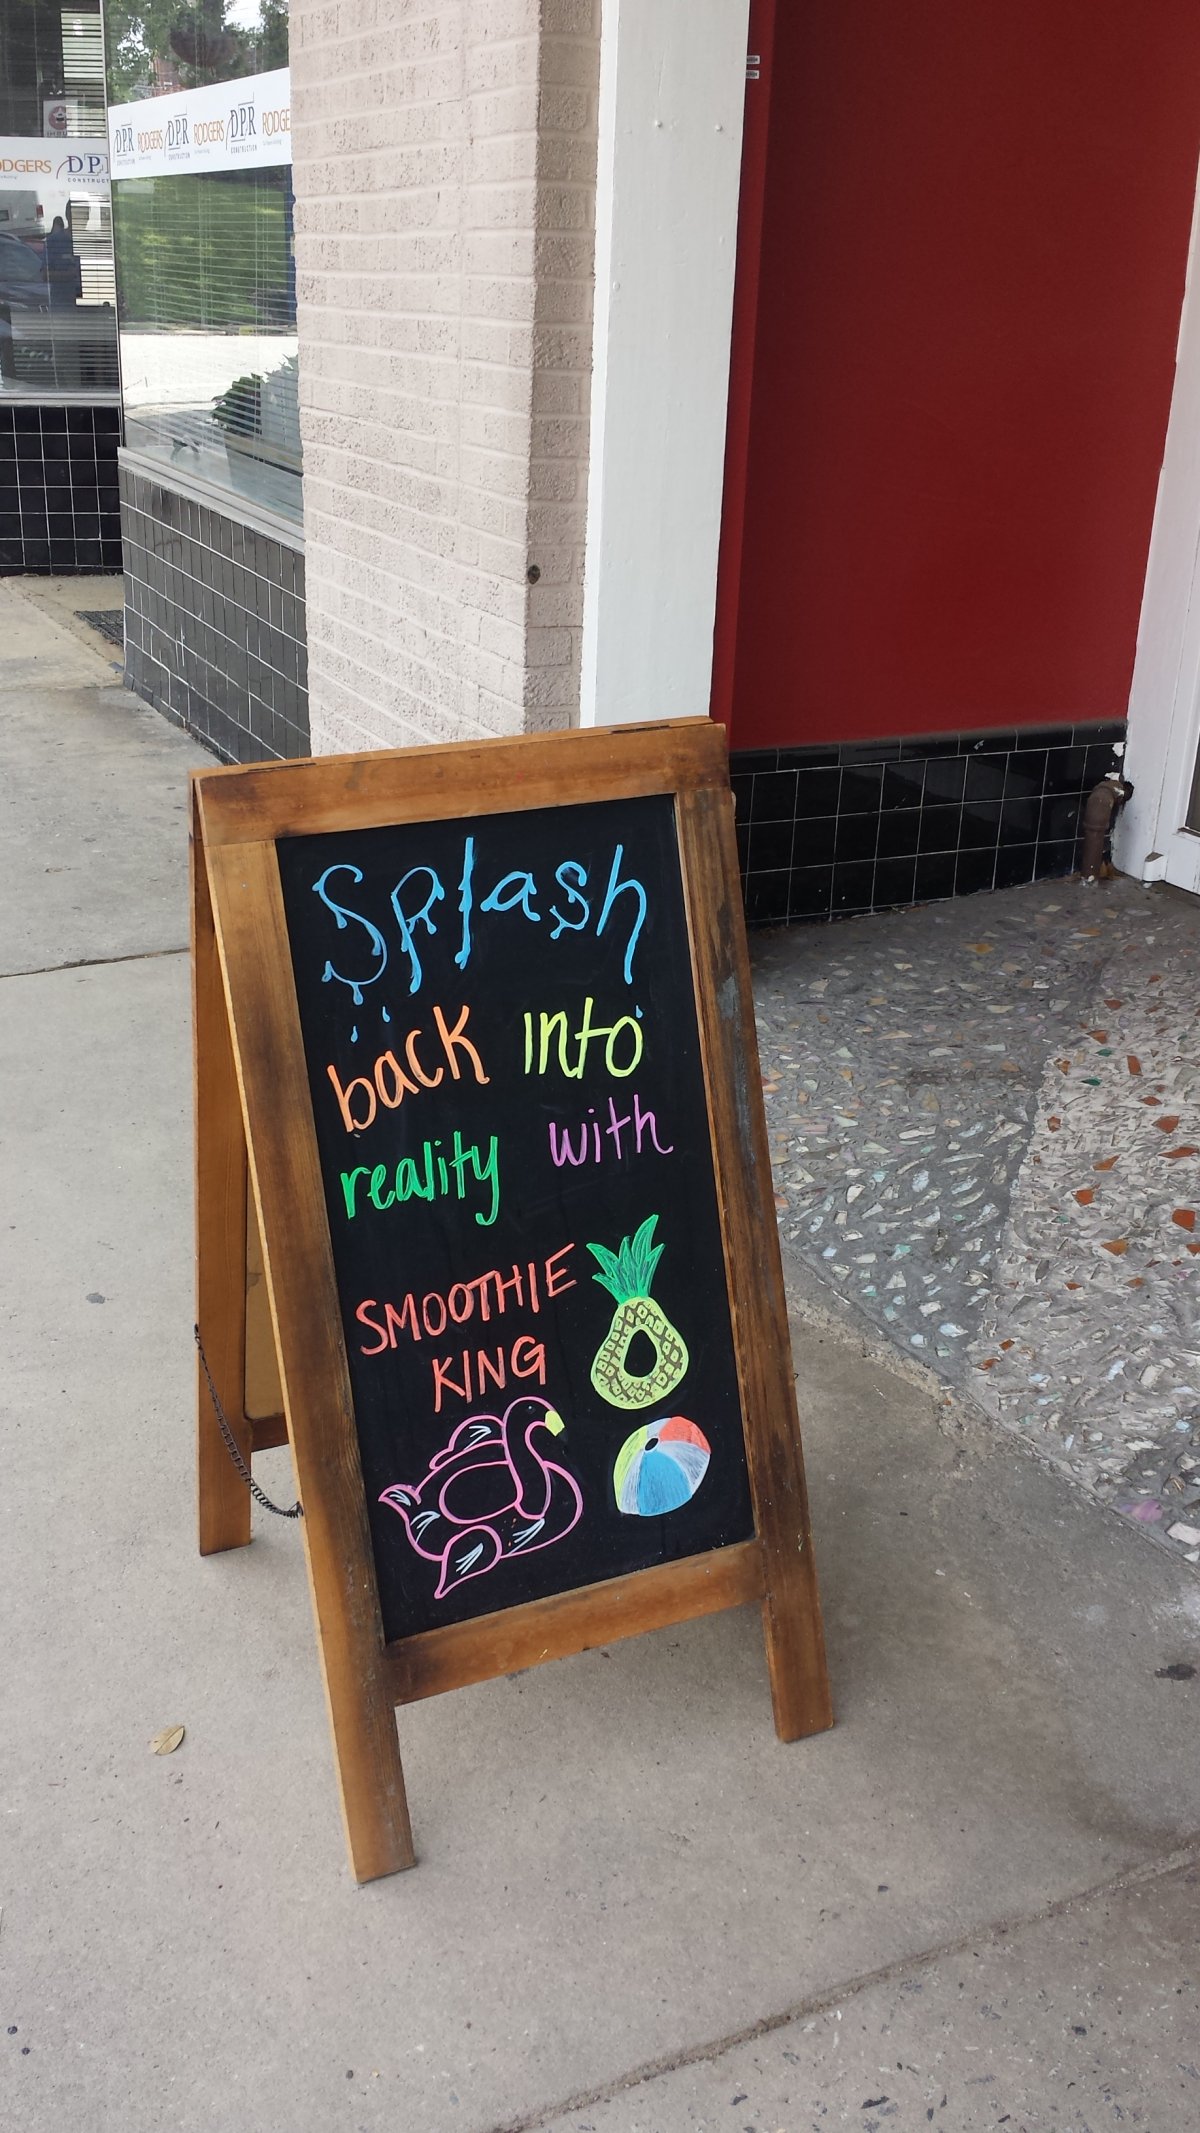 DPR RODGERS DPR RODGERS DPR
CONSTRUCTION CONSTRUCTION CONSTRUCTION
Splash
back into
reality with
SMOOTHIE
KING